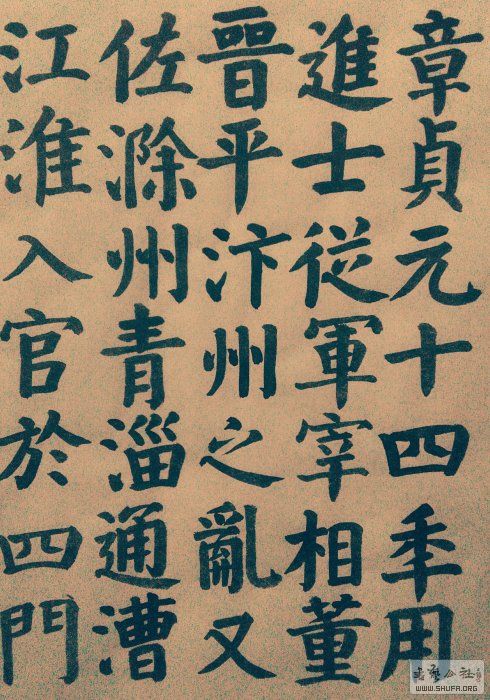 章貞元十四年用
進士從軍宰相董
晉平汴州之亂又
佐滁州青淄通漕
江淮入官於四門
WWW.SHUFA.ORG